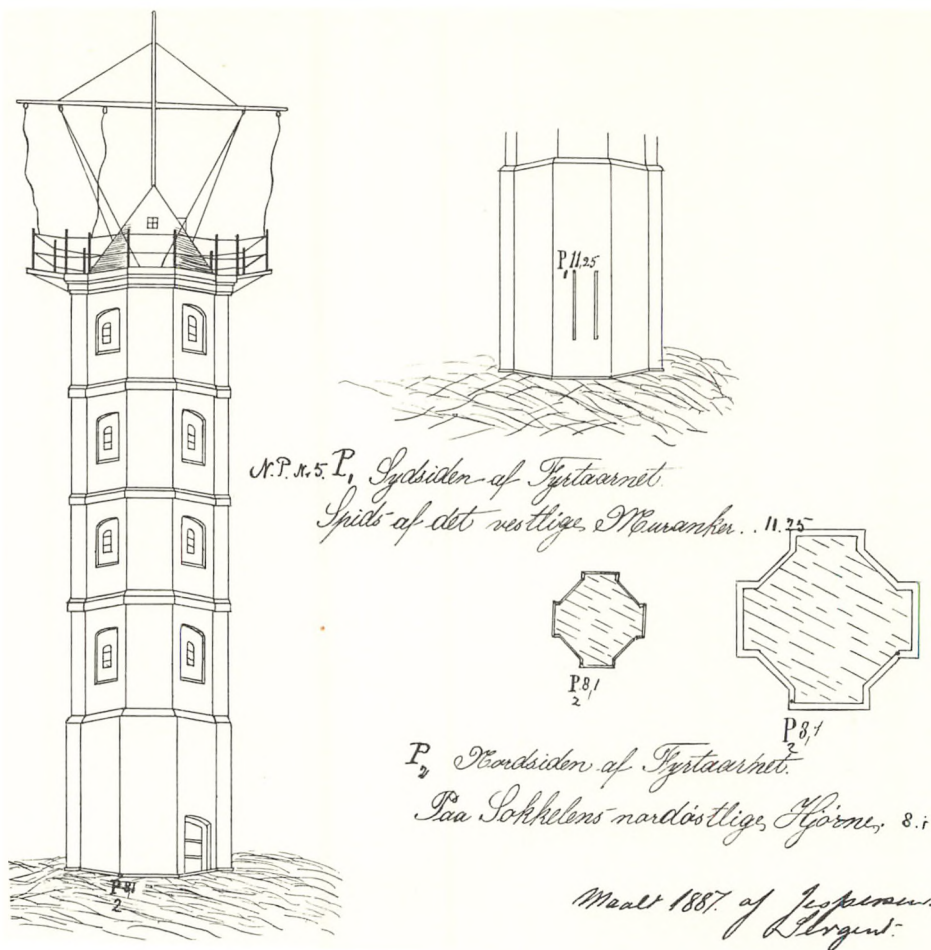 P, 11,25
N.P. Nr. 5. P, Sydsiden af Fyrtaarnet.
Spids af det vestlige Muranker. . 11.25
P 8,1
2
P 8,1
2
P₂ Nordsiden af Fyrtaarnet.
Paa Sokkelens nordöstlige Hjörne. 8.1
P 8,1
2
Maalt 1887. af Jespersen.
Sergent.